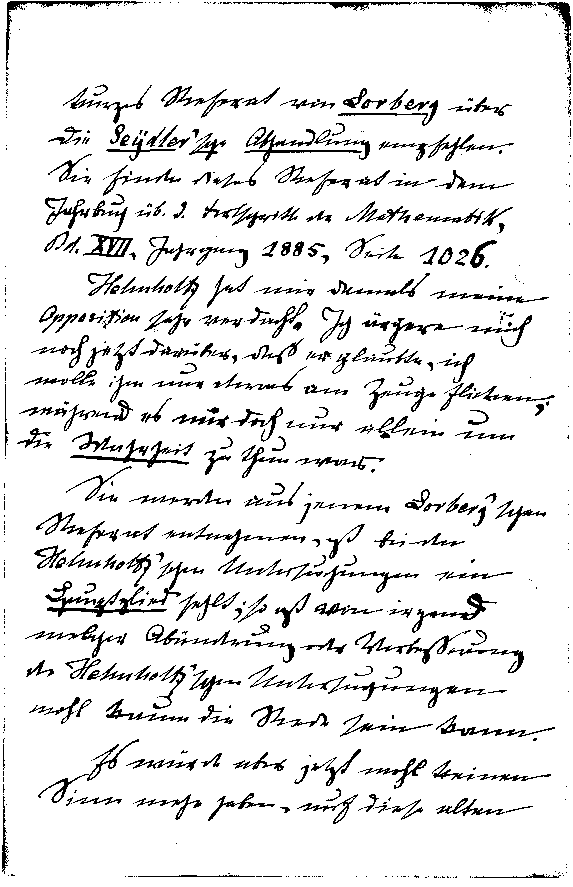 kurzes Referat von Lorberg über
die Seydler'sche Abhandlung empfehlen.
Sie finden dieses Referat in dem
Jahrbuch üb. d. Fortschritte der Mathematik,
Bd. XVII, Jahrgang 1885, Seite 1026.
Helmholtz hat mir damals meine
Opposition sehr verdacht. Ich ärgere mich
noch jetzt darüber, daß er glaubte, ich
wolle ihm nur etwas am Zeuge flicken;
während es mir doch nur allein um
die Wahrheit zu thun war.
Sie werden aus jenem Lorberg'schen
Referat entnehmen, daß bei den
Helmholtz'schen Untersuchungen ein
Hauptglied fehlt; so daß von irgend
welcher Abänderung oder Verbesserung
der Helmholtz'schen Untersuchungen
wohl kaum die Rede sein kann.
Es würde aber jetzt wohl keinen
Sinn mehr haben, auf diese alten